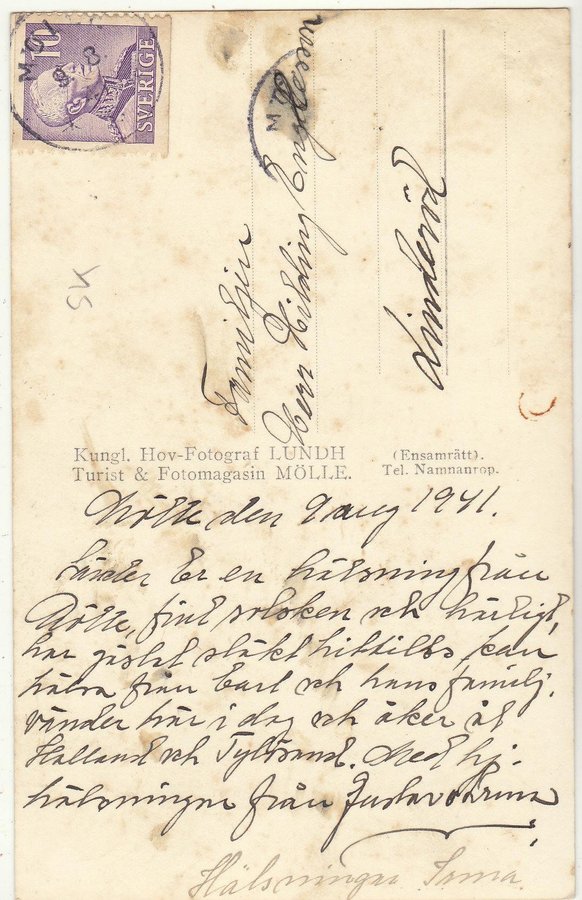 10
SVERIGE
MÖL
9 8
M
Familjen
Herr Hilding Engleson
Linderöd
SH
Kungl. Hov-Fotograf LUNDH (Ensamrätt).
Turist & Fotomagasin MÖLLE. Tel. Namnanrop.
Mölle den 9 aug 1941.
Sänder Er en hälsning från
Mölle, fint solsken och härligt,
har gästat släkt hittills, kan
hälsa från Carl och hans familj.
vänder här i dag och åker åt
Halland och Tylösand. Med hj.
hälsningar från Gustav o Irma
Hälsningar Irma.